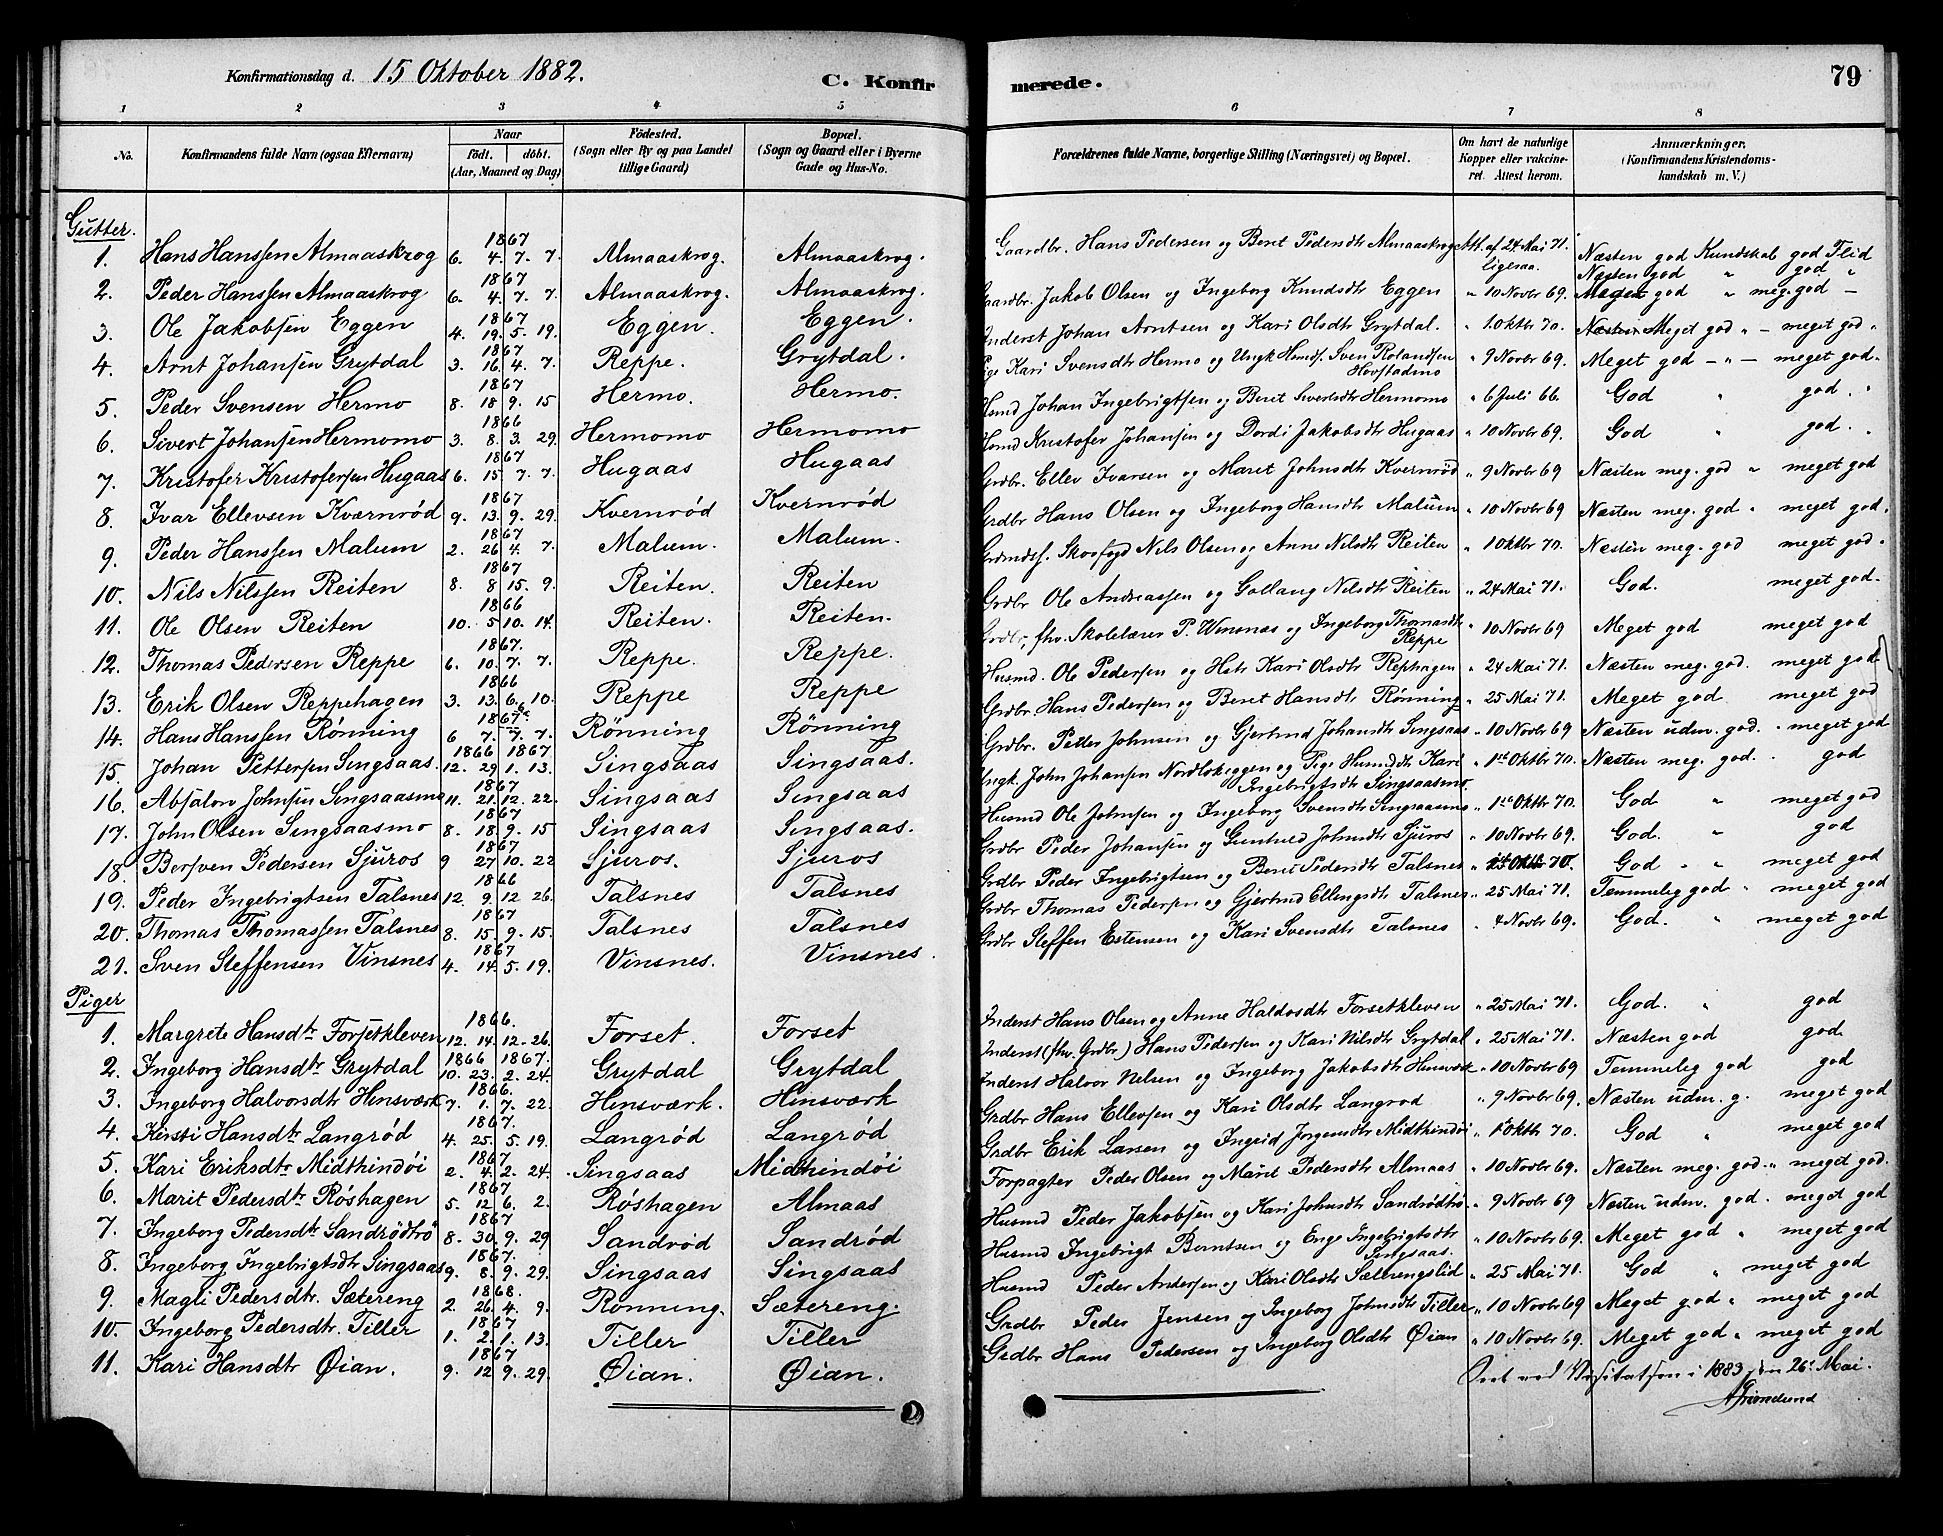 Konfirmationsdag d. 15 Oktober 1882.
C. Konfir
merede.
79
1 2 3 4 5 6 7 8
No.
Konfirmandens fulde Navn (ogsaa Efternavn)
Naar
födt. döbt.
(Aar, Maaned og Dag)
Födested.
(Sogn eller By og paa Landet
tillige Gaard)
Bopæl.
(Sogn og Gaard eller i Byerne
Gade og Hus-No.
Forældrenes fulde Navne, borgerlige Stilling (Næringsvei) og Bopæl.
Om havt de naturlige
Kopper eller vakcine-
ret. Attest herom.
Anmærkninger,
(Konfirmandens Kristendoms-
kundskab m. V.)
Gutter.
1867
1. Hans Hanssen Almaaskrog 6. 4. 7. 7. Almaaskrog. Almaaskrog. Gaardbr. Hans Pedersen og Beret Pedersdtr Almaaskrog Att. af 24 Mai 71. Næsten god Kundskab god Flid
ligesaa. Næsten god " god "
1867
2. Peder Hanssen Almaaskrog 6. 4. 7. 7. Almaaskrog. Almaaskrog.
Gaardbr. Jakob Olsen og Ingeborg Knudsdtr Eggen " 10 Novbr 69. Meget god " meg. god –
1867
3. Ole Jakobsen Eggen 4. 19. 5. 19. Eggen. Eggen.
Inderst Johan Arntsen og Kari Olsdtr Grytdal. " 1 Oktbr 70. Næsten Meget god " – meget god "
1867
4. Arnt Johansen Grytdal 3. 16. 4. 7. Reppe. Grytdal.
Pige Kari Svensdtr Hermo og Ungk Hsmdf. Sven Rolandsen " 9 Novbr 69. Meget god – " – meget god.
Hovstadmo
1867
5. Peder Svensen Hermo 8. 18. 9. 15 Hermo. Hermo.
Hsmd Johan Ingebrigtsen og Beret Sivertsdtr Hermomo " 6 Juli 66. God " god. "
1866
6. Sivert Johansen Hermomo 3. 8. 3. 29. Hermomo Hermomo
Hsmd Kristofer Johansen og Dordi Jakobsdtr Hugaas " 10 Novbr 69. God " god.
1867
7. Kristofer Kristofersen Hugaas 6. 15. 7. 7. Hugaas Hugaas
Grdbr. Ellev Ivarsen og Maret Johnsdtr Kvernrød " 9 Novbr 69 Næsten meg. god " meget god
1867
8. Ivar Ellevsen Kværnrød 9. 13. 9. 29. Kvernrød Kvernrød
Grdbr Hans Olsen og Ingeborg Hansdtr Malum " 10 Novbr 69 Næsten meg. god " meget god.
1867
9. Peder Hanssen Malum 2. 26. 4. 7. Malum. Malum.
Grdmdsf. Skovfogd Nils Olsen og Anne Nilsdtr Reiten " 1 Oktbr 70. Næsten meg. god meget god.
1867
10. Nils Nilssen Reiten 8. 8 15. 9. Reiten. Reiten
Grdbr Ole Andreassen og Gollaug Nilsdtr Reiten " 24 Mai 71. God. meget god.
1866
11. Ole Olsen Reiten 10. 5 10. 14. Reiten. Reiten.
Grdbr, fhv. Skolelærer P. Winsnæs og Ingeborg Thomasdtr " 10 Novbr 69 Meget god meget god
Reppe
1867.
12. Thomas Pedersen Reppe 6. 10. 7. 7. Reppe. Reppe.
Husmd. Ole Pedersen og Hstr Kari Olsdtr Rephagen " 24 Mai 71. Næsten meg. god. meget god
1866
13. Erik Olsen Reppehagen 3. 13. 6. 10. Reppe Reppe
Grdbr. Hans Pedersen og Beret Hansdtr Rønning " 25 Mai 71. Meget god meget god
1867
14. Hans Hanssen Rønning 6 7. 7. 7. Rönning Rönning
Grdbr. Petter Johnsen og Gjertrud Johansdtr Singsaas " 10 Novbr 69 Næsten udm. god. meget god
1866 1867
15. Johan Pettersen Singsaas. 12. 29 1. 13. Singsaas Singsaas.
Ungk. John Johansen Nordlokeggen og Pige Husmdtr Kari " 1st Oktbr 70. Næsten meg. god. god
Ingebrigtsdtr Singsaasmo
1867
16. Absalon Johnsen Singsaasmo 11. 21. 12. 22. Singsaas Singsaas
Husmd Ole Johnsen og Ingeborg Svensdtr Singsaasmo " 1ste Oktbr 70. God " meget god
1867
17. John Olsen Singsaasmo 8. 18. 9. 15 Singsaas Singsaas.
Grdbr Peder Johansen og Gunhild Johnsdtr Sjuros " 10 Novbr 69. God. " god
1867
18. Borsven Pedersen Sjuros 9 27 10. 22 Sjuros. Sjuros
Grdbr Peder Ingebrigtsen og Beret Pedersdtr Talsnes " 1st Oktbr 70. God " " meget god
1866
19. Peder Ingebrigtsen Talsnes 12. 9. 12 26. Talsnes Talsnes
Grdbr Thomas Pedersen og Gjertrud Ellingsdtr Talsnes " 25 Mai 71. Temmelig god " meget god
1867
20. Thomas Thomassen Talsnes 8. 15. 9. 15. Talsnes Talsnes
Grdbr Steffen Estensen og Kari Svensdtr Talsnes " 4 Novbr 69. God. " meget god
1867
21. Sven Steffensen Vinsnes 4. 14. 5. 19. Vinsnes. Vinsnes.
Piger
1866.
1. Margrete Hansdtr Forsetkleven 12. 14. 12. 26. Forset. Forset
Inderst Hans Olsen og Anne Haldosdtr Forsetkleven " 25 Mai 71. God. " god
1866 1867.
2. Ingeborg Hansdtr Grytdal 10. 23. 2. 24. Grytdal Grytdal
Inderst (fhv. Grdbr) Hans Pedersen og Kari Nilsdtr Grytdal " 25 Mai 71. Næsten god god
1866.
3. Ingeborg Halvorsdtr Hinsværk 7. 1. 7. 22. Hinsværk. Hinsværk
Inderst Halvor Nilsen og Ingeborg Jakobsdtr Hinsværk " 10 Novbr 69 Temmelig god god
1867.
4. Kirsti Hansdtr Langrød 4. 25. 5. 19. Langrød Langrød
Grdbr Hans Ellevsen og Kari Olsdtr Langrød " 9 Novbr 69. Næsten udm. g. meget god
1867
5. Kari Eriksdtr Midthindöi 2. 4. 2. 24. Singsaas Midthindöi
Grdbr Erik Larsen og Ingrid Jørgensdtr Midthindöi " 1st Oktbr 70. God " meget god
1867
6. Marit Pedersdtr Röshagen 5. 12 6. 2. Röshagen Almaas
Forpagter Peder Olsen og Marit Pedersdtr Almaas " 10 Novbr 69. Næsten meg. god. " meget god.
1867
7. Ingeborg Pedersdtr Sandrödtrö 8. 30. 9. 29 Sandrød Sandrød
Husmd Peder Jakobsen og Kari Johnsdtr Sandrödtrö " 9 Novbr 69 Næsten udm. god. meget god
1867.
8. Ingeborg Ingebrigtsdtr Singsaas 9. 8. 9. 29. Singsaas Singsaas
Husmd Ingebrigt Berntsen og Enge Ingebrigtsdtr " 10 Novbr 69. Meget god " meget god
Singsaas.
1868.
9. Magli Pedersdtr. Sætereng 2. 26. 4. 9. Rönning. Sætereng.
Husmd Peder Andersen og Kari Olsdtr Sæterengslid " 25 Mai 71. God " meget god
1867
10. Ingeborg Pedersdtr. Tiller 1. 2. 1. 13. Tiller Tiller
Grdbr Peder Jensen og Ingeborg Johnsdtr Tiller " 10 Novbr 69 Meget god " meget god
1867
11. Kari Hansdtr Øian. 9. 12 9. 29. Øian. Øian.
Grdbr Hans Pedersen og Ingeborg Olsdtr Øian " 10 Novbr 69. Meget god " meget god
Seet ved Visitatsen i 1883 den 26. Mai.
AGrimelund